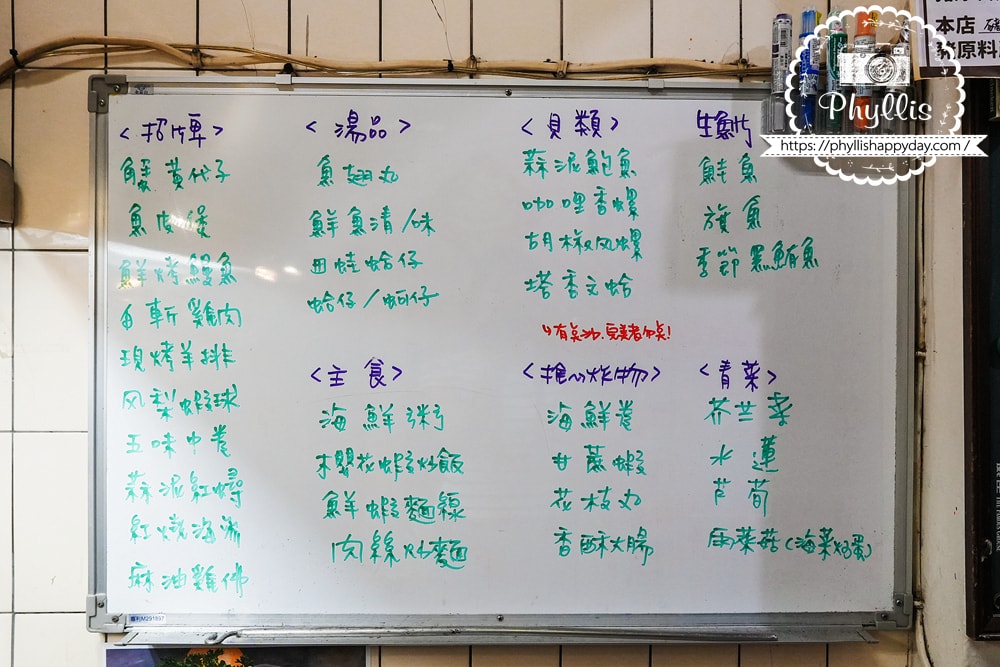 <招牌>
蟹黃代子
魚皮煲
鮮烤鰻魚
白斬雞肉
現烤羊排
风梨蝦球
五味中卷
蒜泥紅蟳
紅燒海
麻油雞佛
<湯品>
魚翅丸
鮮魚清/味
田蛙蛤仔
蛤仔/蚵仔
<貝類>
蒜泥鮑魚
咖哩香螺
胡椒风螺
塔香文蛤
生魚片
鮭魚
旗魚
季節黑鮪魚
<主食>
海鮮粥
櫻花蝦炒飯
鮮蝦麵線
肉絲炒麵
<推心炸物>
海鮮卷
甘蔗蝦
花枝丸
香酥大腸
<青菜>
芥芒菜
水蓮
芦荀
雨菜菇(海菜炒蛋)
本店
豬原料
Phyllis
https://phyllishappyday.com/
專利M291897